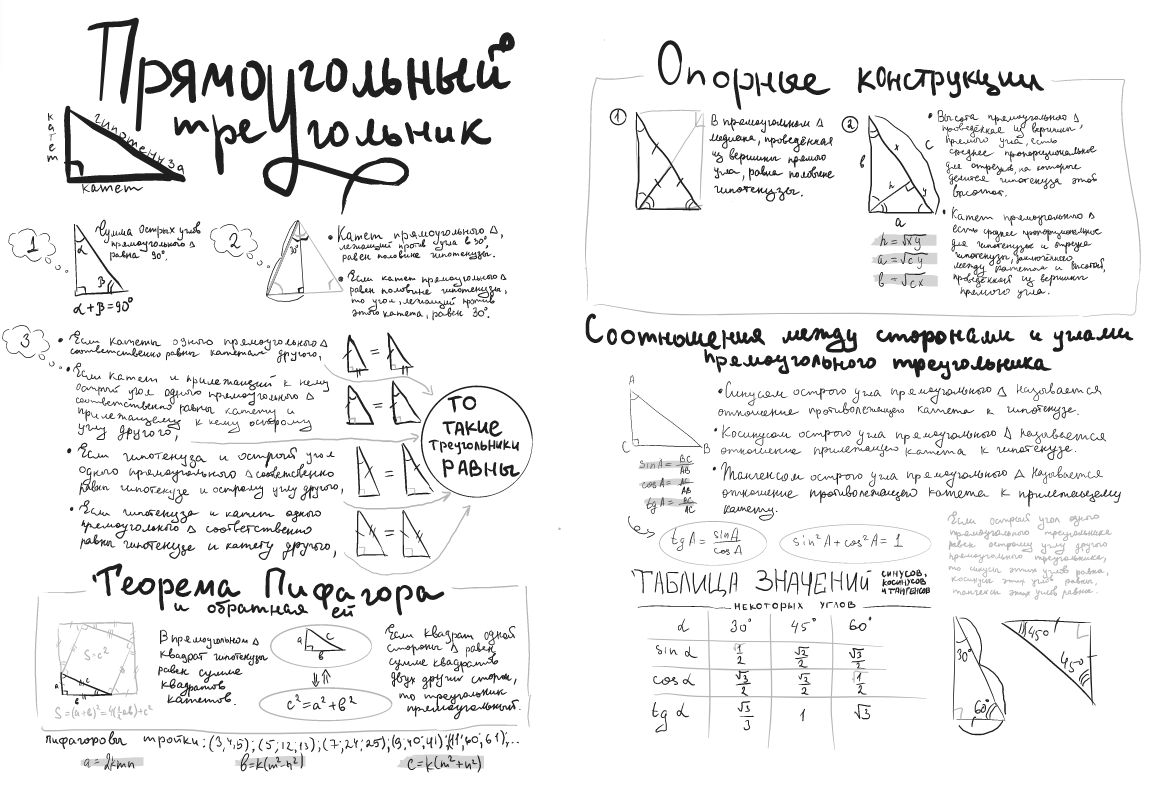 Прямоугольный
треугольник
катет
гипотенуза
катет
1
α
β
α+β=90°
Сумма острых углов
прямоугольного Δ
равна 90°.
2
30°
• Катет прямоугольного Δ,
лежащий против угла в 30°,
равен половине гипотенузы.
• Если катет прямоугольного Δ
равен половине гипотенузы,
то угол, лежащий против
этого катета, равен 30°.
3
• Если катеты одного прямоугольного Δ
соответственно равны катетам другого,
• Если катет и прилежащий к нему
острый угол одного прямоугольного Δ
соответственно равны катету и
прилежащему к нему острому
углу другого,
• Если гипотенуза и острый угол
одного прямоугольного Δ соответственно
равны гипотенузе и острому углу другого,
• Если гипотенуза и катет одного
прямоугольного Δ соответственно
равны гипотенузе и катету другого,
=
=
=
=
ТО
ТАКИЕ
ТРЕУГОЛЬНИКИ
РАВНЫ
Теорема Пифагора
и обратная ей
S=c²
a
c
в
S=(a+в)²=4(½aв)+c²
В прямоугольном Δ
квадрат гипотенузы
равен сумме
квадратов
катетов.
a
c
в
⇓⇑
c²=a²+в²
Если квадрат одной
стороны Δ равен
сумме квадратов
двух других сторон,
то треугольник
прямоугольный.
Пифагоровы тройки: (3,4,5); (5,12,13); (7,24,25); (9,40,41); (11,60,61);...
a=2kmn
в=k(m²-n²)
c=k(m²+n²)
Опорные конструкции
1
В прямоугольном Δ
медиана, проведённая
из вершины прямого
угла, равна половине
гипотенузы.
2
в
x
c
h
y
a
h=√xy
a=√cy
в=√cx
• Высота прямоугольного Δ
проведённая из вершины,
прямого угла, есть
среднее пропорциональное
для отрезков, на которые
делится гипотенуза этой
высотой.
• Катет прямоугольного Δ
есть среднее пропорциональное
для гипотенузы и отрезка
гипотенузы, заключённого
между катетом и высотой,
проведённой из вершины
прямого угла.
Соотношения между сторонами и углами
прямоугольного треугольника
A
C
B
sinA= BC/AB
cosA= AC/AB
tgA= BC/AC
• Синусом острого угла прямоугольного Δ называется
отношение противолежащего катета к гипотенузе.
• Косинусом острого угла прямоугольного Δ называется
отношение прилежащего катета к гипотенузе.
• Тангенсом острого угла прямоугольного Δ называется
отношение противолежащего катета к прилежащему
катету.
tgA= sinA/cosA
sin²A+cos²A=1
Если острый угол одного
прямоугольного треугольника
равен острому углу другого
прямоугольного треугольника,
то синусы этих углов равны,
косинусы этих углов равны,
тангенсы этих углов равны.
ТАБЛИЦА ЗНАЧЕНИЙ СИНУСОВ, КОСИНУСОВ И ТАНГЕНСОВ
НЕКОТОРЫХ УГЛОВ
α 30° 45° 60°
sin α 1/2 √2/2 √3/2
cos α √3/2 √3/2 1/2
tg α √3/3 1 √3
30°
60°
45°
45°